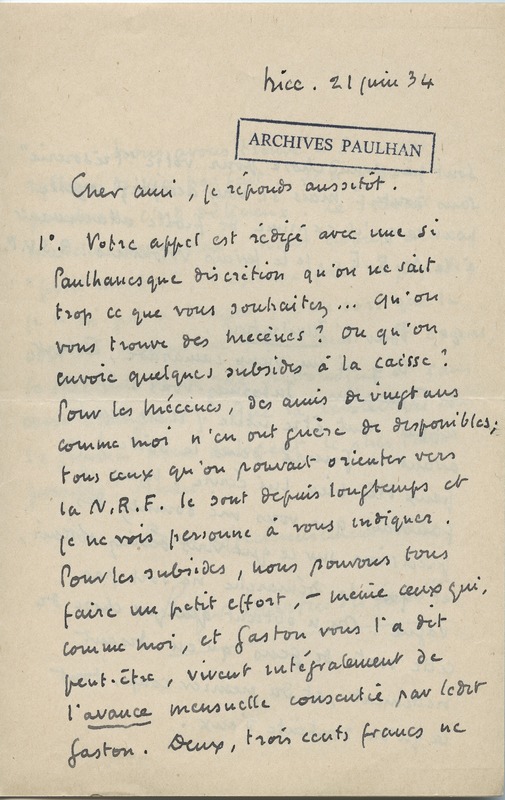 Nice. 21 juin 34
ARCHIVES PAULHAN
Cher ami, je réponds aussitôt.
1°. Votre appel est rédigé avec une si
Paulhanesque discrétion qu'on ne sait
trop ce que vous souhaitez... Qu'on
vous trouve des mécènes ? Ou qu'on
envoie quelques subsides à la caisse ?
Pour les mécènes, des amis de vingt ans
comme moi n'en ont guère de disponibles ;
tous ceux qu'on pouvait orienter vers
la N.R.F. le sont depuis longtemps et
je ne vois personne à vous indiquer.
Pour les subsides, nous pouvons tous
faire un petit effort, – même ceux qui,
comme moi, et Gaston vous l'a dit
peut-être, vivent intégralement de
l'avance mensuelle consentie par ledit
Gaston. Deux, trois cents francs ne